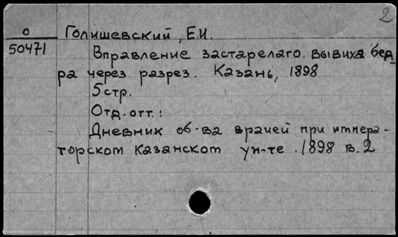 2
о Голишевский, Е.И.
50471 Вправление застарелаго вывиха бед-
ра через разрез. Казань, 1898
5 стр.
Отд. отт.:
Дневник об-ва врачей при импера-
торском Казанском ун-те. 1898 в. 2